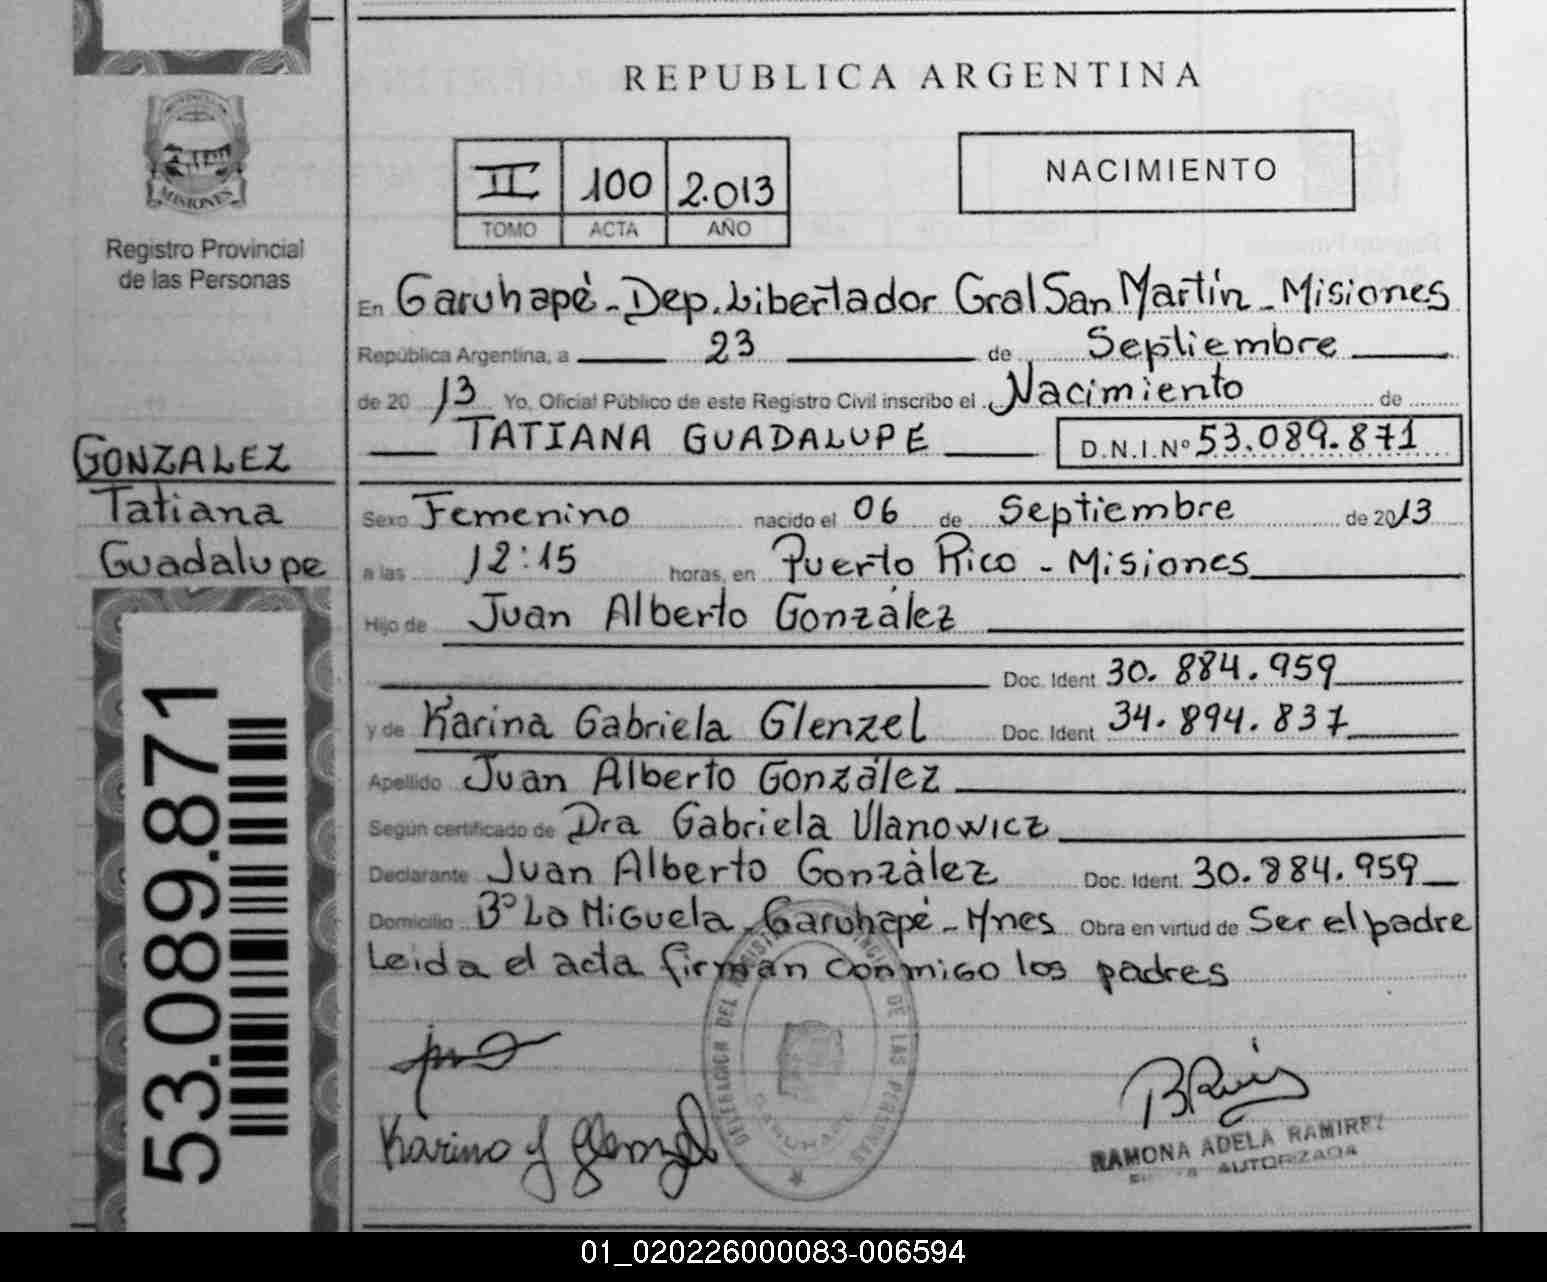 REPUBLICA ARGENTINA
MISIONES
Registro Provincial
de las Personas
II 100 2.013
TOMO ACTA AÑO
NACIMIENTO
En Garuhapé - Dep. Libertador Gral San Martín - Misiones
República Argentina, a 23 de Septiembre
de 20 13 Yo, Oficial Público de este Registro Civil inscribo el Nacimiento de
TATIANA GUADALUPE D.N.I.Nº 53.089.871
GONZALEZ
Tatiana
Guadalupe
Sexo Femenino nacido el 06 de Septiembre de 2013
a las 12:15 horas, en Puerto Rico - Misiones
Hijo de Juan Alberto González
Doc. Ident 30.884.959
y de Karina Gabriela Glenzel Doc. Ident 34.894.837
Apellido Juan Alberto González
Según certificado de Dra Gabriela Ulanowicz
Declarante Juan Alberto Gonzàlez Doc. Ident. 30.884.959
Domicilio Bº La Miguela - Garuhapé - Mnes Obra en virtud de Ser el padre
Leida el acta firman conmigo los padres
53.089.871
DELEGACION DEL REGISTRO PROVINCIAL DE LAS PERSONAS
GARUHAPE
Karina G Glenzel
RAMONA ADELA RAMIREZ
AUTORIZADA
01_020226000083-006594